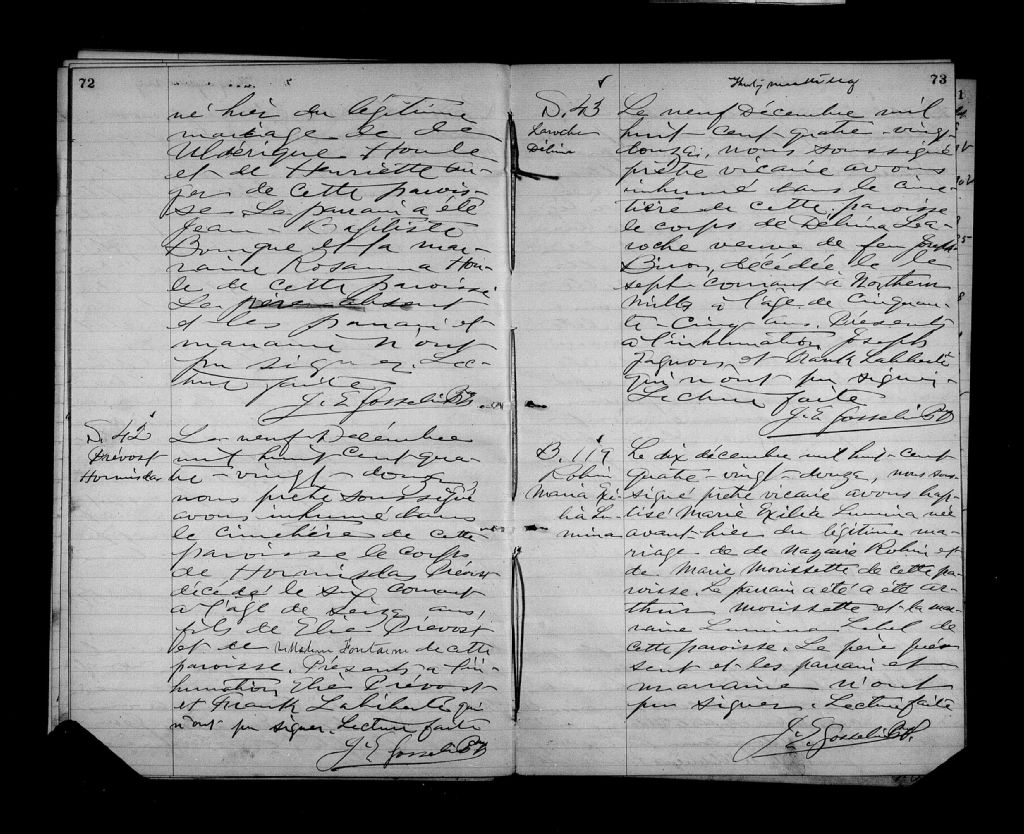 72
né hier du légitime
mariage de de
Uldérique Houle
et de Henriette
de cette parois-
se Le parrain a été
Jean-Baptiste
Bourque et la mar-
raine Rosanna Hou-
le de cette paroisse
Le père absent
et les parrain et
marraine n'ont
pu signer. Lec-
ture faite
J. E. Gosselin Ptr.
S. 42
Prévost
Hormisdas
Le neuf Décembre
mil huit cent qua-
tre-vingt-douze,
nous prêtre soussigné
avons inhumé dans
le cimetière de cette
paroisse le corps
de Hormisdas Prévost
décédé le six courant
a l'âge de Seize ans,
fils de Elie Prévost
et de Fontaine de cette
paroisse. Présents a l'in-
humation Elie Prévost
et Frank Laliberté qui
n'ont pu signer. Lecture faite
J. E. Gosselin Ptr
73
S. 43
Laroche
Délina
Le neuf Décembre mil
huit-cent-quatre-vingt
douze, nous soussigné
prêtre vicaire avons
inhumé dans le cime-
tière de cette paroisse
le corps de Délina La-
roche veuve de feu Joseph
Biron, décédée le le
sept courant à Northern
Mills à l'âge de Cinquan-
te-Cinq ans. Présents
à l'inhumation Joseph
Gagnon, et Frank Laliberté
qui n'ont pu signer.
Lecture faite
J. E. Gosselin Ptr
B. 119
Robin
Maria Exi-
lia Lu-
mina
Le dix décembre mil huit-cent
quatre-vingt-douze, nous sous-
signé prêtre vicaire avons bap-
tisé Marie Exilia Lumina née
avant-hier du légitime ma-
riage de de Nazaire Robin et
de Marie Morissette de cette pa-
roisse. Le parrain a été a été Ar-
thur Morissette et la mar-
raine Lumina Lebel de
cette paroisse. Le père pré-
sent et les parrain et
marraine n'ont
pu signer. Lecture faite
J. E. Gosselin Ptr.